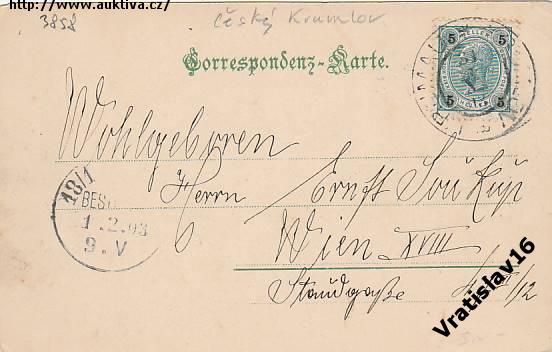 http://www.auktiva.cz/
3858
Český Krumlov
Correspondenz-Karte.
5 5
5 5
Wohlgeboren
Herrn Ernst Soukup
Wien XVIII
Staudgaße
18/1
BEST
1.2.03
9.V
Vratislav16